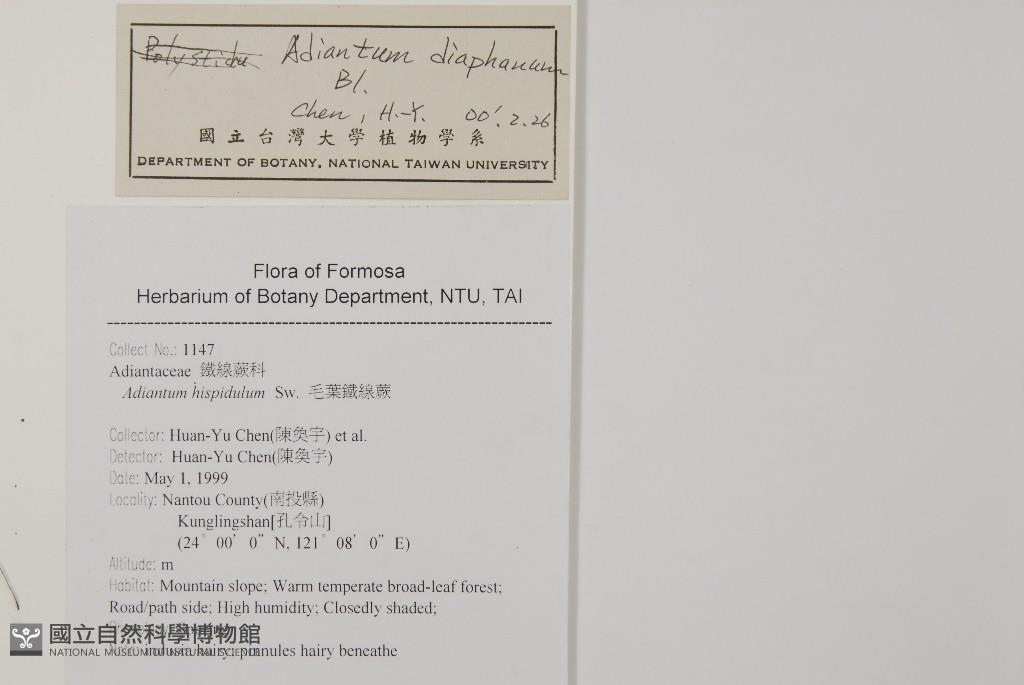 Polystidu Adiantum diaphanum
Bl.
Chen, H.-Y. 00'. 2. 26
國立台灣大學植物學系
DEPARTMENT OF BOTANY, NATIONAL TAIWAN UNIVERSITY
Flora of Formosa
Herbarium of Botany Department, NTU, TAI
Collect No.: 1147
Adiantaceae 鐵線蕨科
Adiantum hispidulum Sw. 毛葉鐵線蕨
Collector: Huan-Yu Chen(陳奐宇) et al.
Detector: Huan-Yu Chen(陳奐宇)
Date: May 1, 1999
Locality: Nantou County(南投縣)
Kunglingshan[孔令山]
(24° 00' 0" N, 121° 08' 0" E)
Altitude: m
Habitat: Mountain slope; Warm temperate broad-leaf forest;
Road/path side; High humidity; Closedly shaded;
國立自然科學博物館
NATIONAL MUSEUM OF NATURAL SCIENCE
hairy beneathe